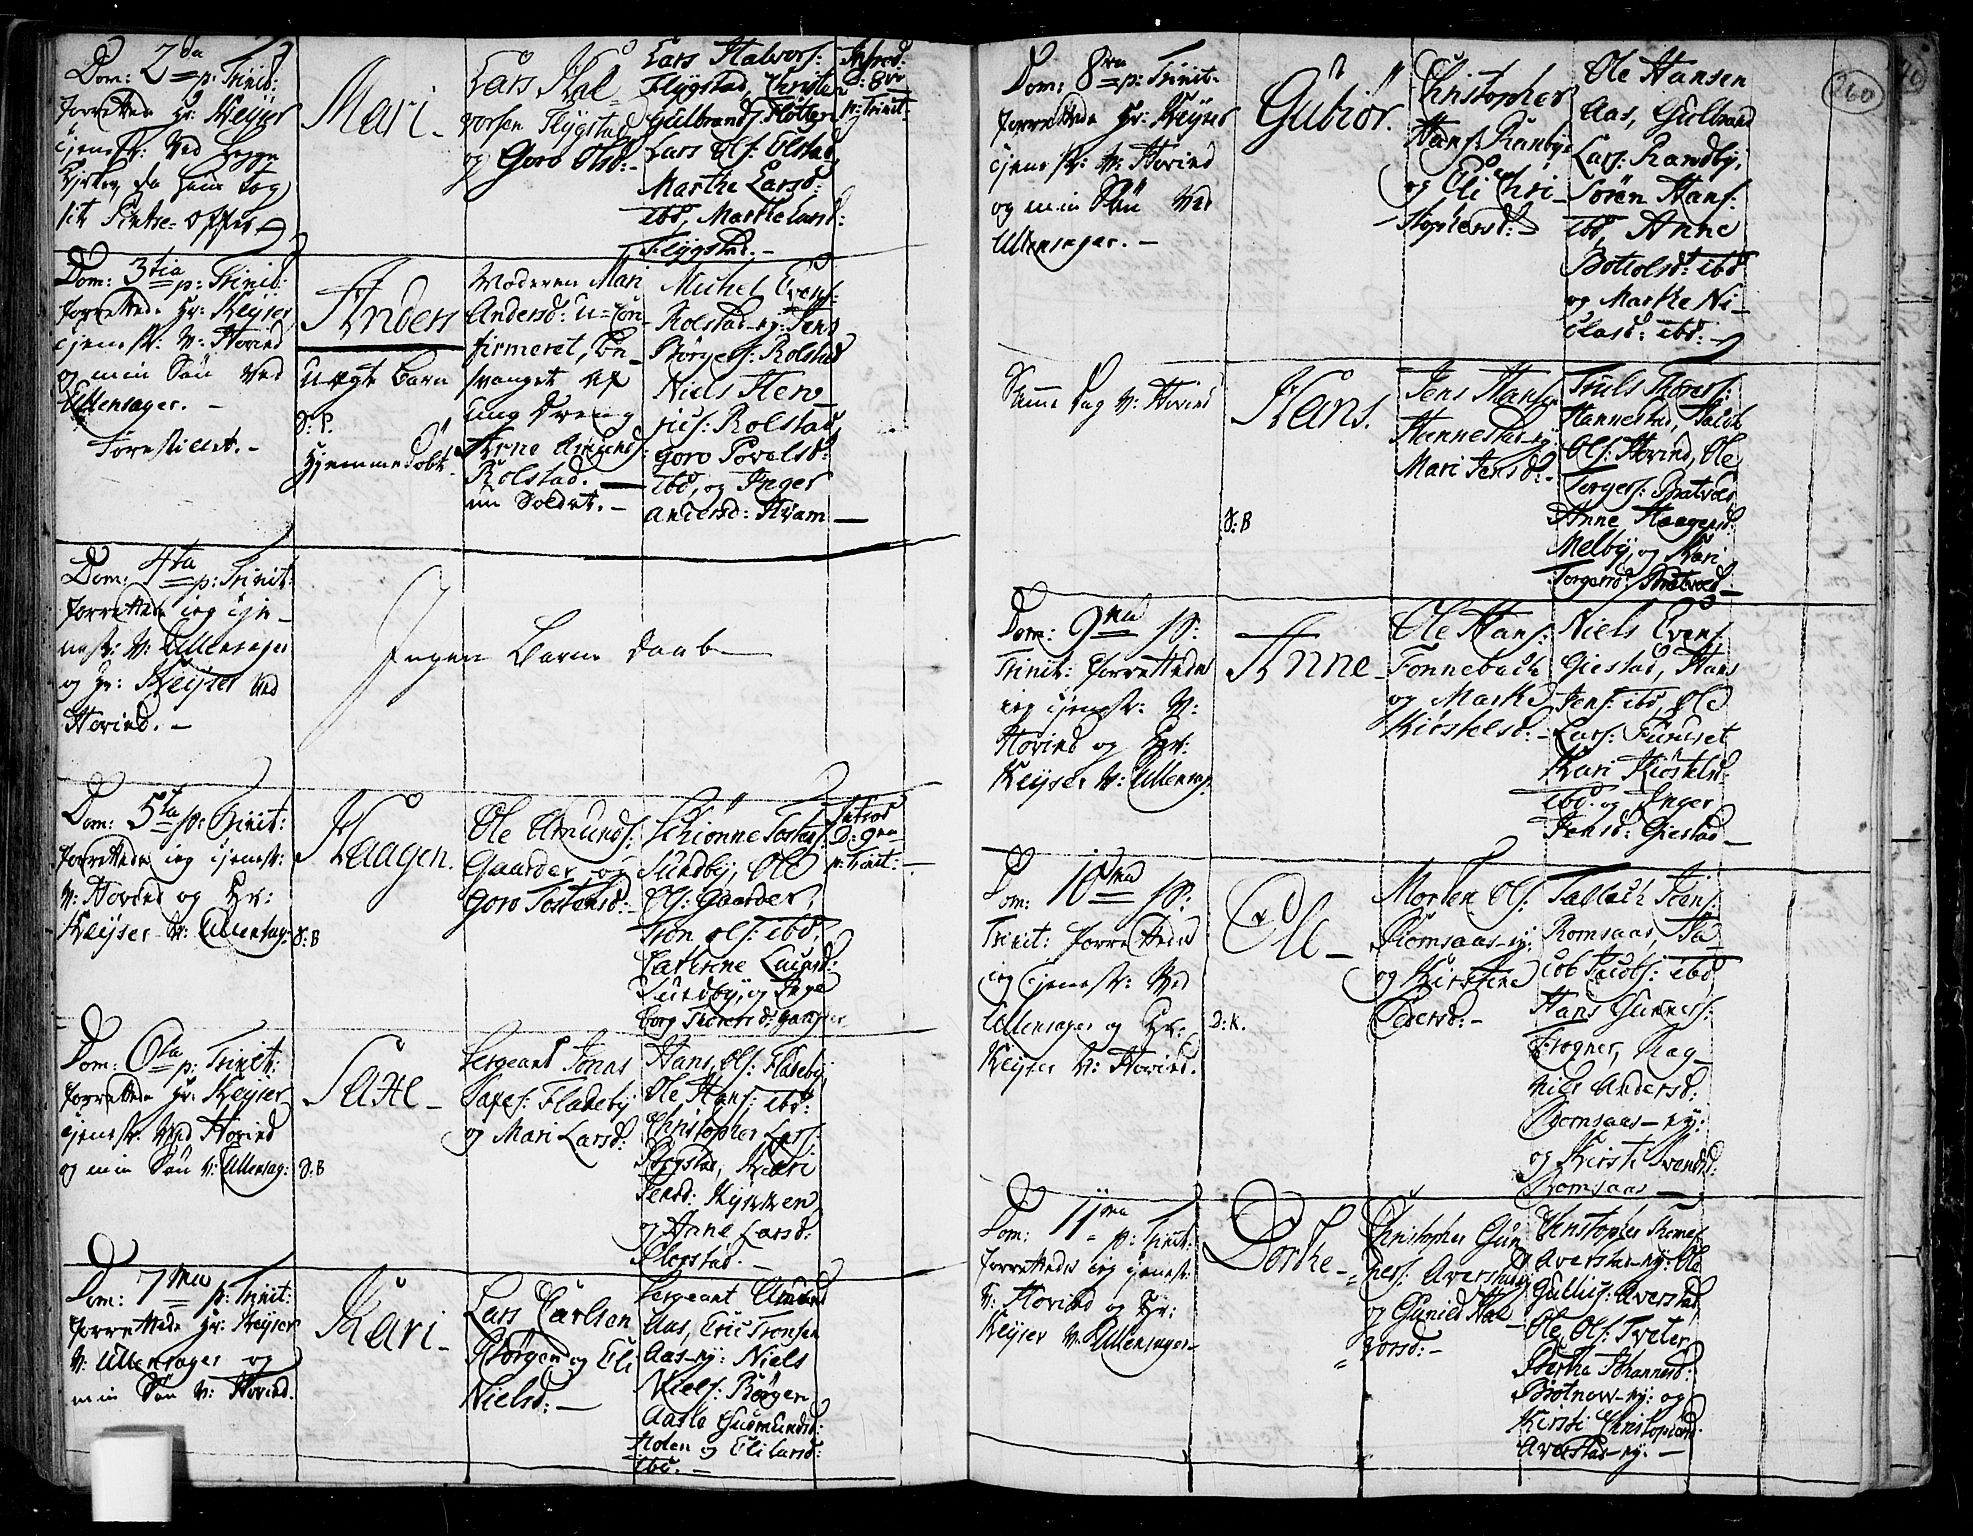 Dom: 2da p: Trinit:
forrettede Hr: Keyser
tjenest: Ved Hogge
Kirke, da han tog
sit Pintse-Offer
Mari
Lars Hal-
vorsen Flygstad
og Goro Olsd:
Lars Halvors:
Flygstad, Christen
Gulbrands: Holter
Lars Ols: Elstad
Marthe Larsd:
ibd, Marthe Larsd:
Flygstad.
Introd:
D: 8va
p: Trinit:
Dom: 3tia p: Trinit:
forrettede Hr: Keyser
tjenest: V: Hovind
og min Søn Ved
Ullensager.
Anders
uægte Barn
S: P.
Hjemmedøbt
Moderen Mari
Andersd: u-Con-
firmeret, be-
svanget af
ung Dreng
Arne Amunds:
Rolstad.
nu Soldat.
Michel Evens:
Rolstad-ey: Jens
Børges: Rolstad
Niels Hen-
ric: Rolstad,
Goro Povelsd:
ibd, og Inger
Andersd: Hvam
Dom: 4ta p: Trinit:
forrettede ieg tje-
nest: V: Ullensager
og Hr: Keyser Ved
Hovind.
Ingen Barne Daab
Dom: 5ta p: Trinit:
forrettede ieg tjenest:
V: Hovind og Hr:
Keyser V: Ullensag:
Haagen.
S: B
Ole Amunds:
Gaarder og
Goro Tostensd:
Schiønne Tostens:
Sundby, Ole
Ols: Gaarder,
Tron Ols: ibd,
Catherine Lars:d:
Sundby, og Inge-
borg Thoresd: Gaarder
Introd
D: 9na
p: Trinit:
Dom: 6ta p: Trinit:
forrettede Hr: Keyser
tjenest: Ved Hovind
og min Søn V: Ullensag:
Saxe
S: B
Sergeant Jonas
Saxes: Fladeby
og Mari Larsd:
Hans Ols: Fladeby
Ole Hans: ibd:
Christopher Lars:
Bogstad, Kari
Jensd: Kykken
og Anne Larsd:
Bogstad.
Dom: 7ma p: Trinit:
forrettede Hr: Keyser
V: Ullensager og
min Søn V: Hovind.
Kari
Lars Carlsen
Børgen og Eli
Nielsd:
Sergeant Amund
Aas, Eric Tronsen
Aas-ey: Niels
Niels: Børgen
Aaste Gudmundsd:
Holen og Eli Larsd:
ibd.
260
Dom: 8va p: Trinit:
forrettede Hr: Keyser
tjenest: V: Hovind
og min Søn Ved
Ullensager.
Gubiør.
Christopher
Hans: Ranby
og Eli Chri-
stophersd:
Ole Hansen
Aas, Gulbrand
Lars: Randby,
Søren Hans:
ibd, Anne
Bottolsd: ibd
og Marthe Ni-
clasd: ibd:
Samme Dag V: Hovind
Hans.
S: B
Jens Hans:
Hannestad-ey:
Mari Jensd:
Truls Thores:
Hannestad, Jacob
Ols: Hovind, Ole
Torgers: Bratvold
Anne Haagensd:
Melby, og Kari
Torgersd: Bratvold
Dom: 9na p:
Trinit: forrettede
ieg tjenest: V:
Hovind og Hr:
Keyser V: Ullensag:
Anne
Ole Hans:
Fonnebach
og Marthe
Kiøstelsd:
Niels Evens:
Giestad, Hans
Jens: ibd, Ole
Lars: Furuset
Kari Kiøstelsd:
ibd. og Inger
Jensd: Giestad
Dom: 10ma p:
Trinit: forrettede
ieg tjenest: Ved
Ullensager og Hr:
Keyser V: Hovind.
Ole
D: K.
Morten Ols:
Romsaas-ey:
og Kirstine
Pedersd:
Tallach Jens:
Romsaas, Ja-
cob Jacobs: ibd
Hans Gunners:
Frogner, Rag-
nild Andersd:
Romsaas-ey:
og Kirsti Svendsd:
Romsaas
Dom: 11ma p: Trinit:
forrettede ieg tjenest:
V: Hovind og Hr:
Keyser V: Ullensager
Dorthe
Christopher Gun-
ners: Averstad
og Gunild Hal-
vorsd:
Christopher Thomes:
Averstad-ey: Ole
Gullics: Averstad,
Ole Ols: Tveter
Berthe Johannesd:
Brotnow-ey: og
Kirsti Christophersd:
Averstad-ey.